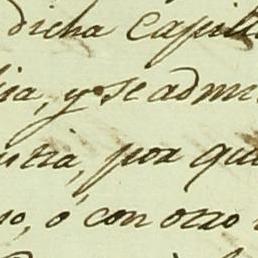 dicha Capill
ia, y se admi
utia, por qu
no, ó con otro